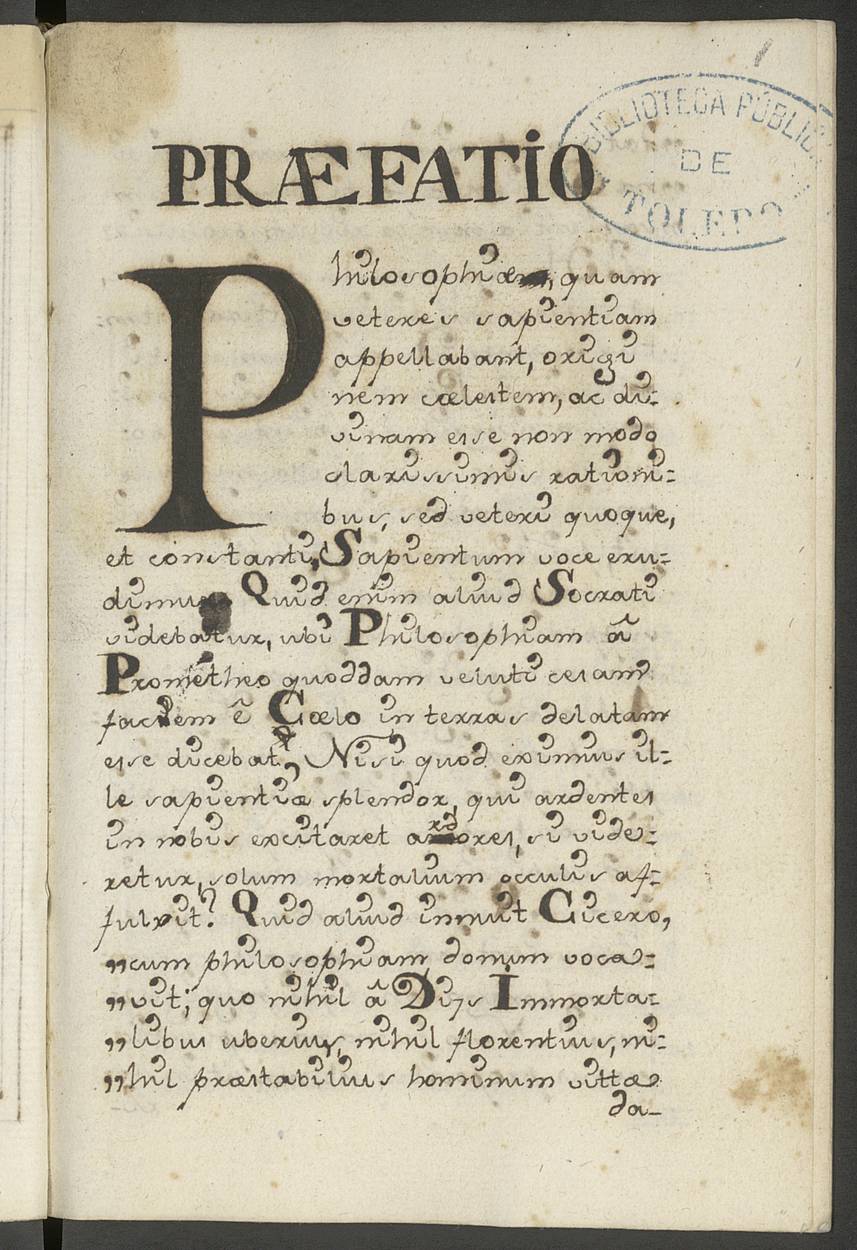 1
BIBLIOTECA PÚBLICA
DE
TOLEDO
PRÆFATIO
Philosophiæ, quam
veteres sapientiam
appellabant, origi
nem cælestem, ac di:
vinam esse non modo
clarissimis rationi:
bus, sed veterū quoque,
et constanti, Sapientum voce eru:
dimur. Quid enim aliud Socrati
videbatur, ubi Philosophiam â
Prometheo quoddam veluti cesam
facem ê Cœlo in terras delatam
esse dicebat, Nisi quod eximius il:
le sapientiæ splendor, qui ardentes
in nobis excitaret ardores, si vide:
retur, solum mortalium occulis af:
fulxit? Quid aliud innuit Cicero,
„cum philosophiam, donum voca:
„vit; quo nihil â Dijs Immorta:
„libus uberius, nihil florentius, ni:
„hil præstabilius hominum vittæ
da_